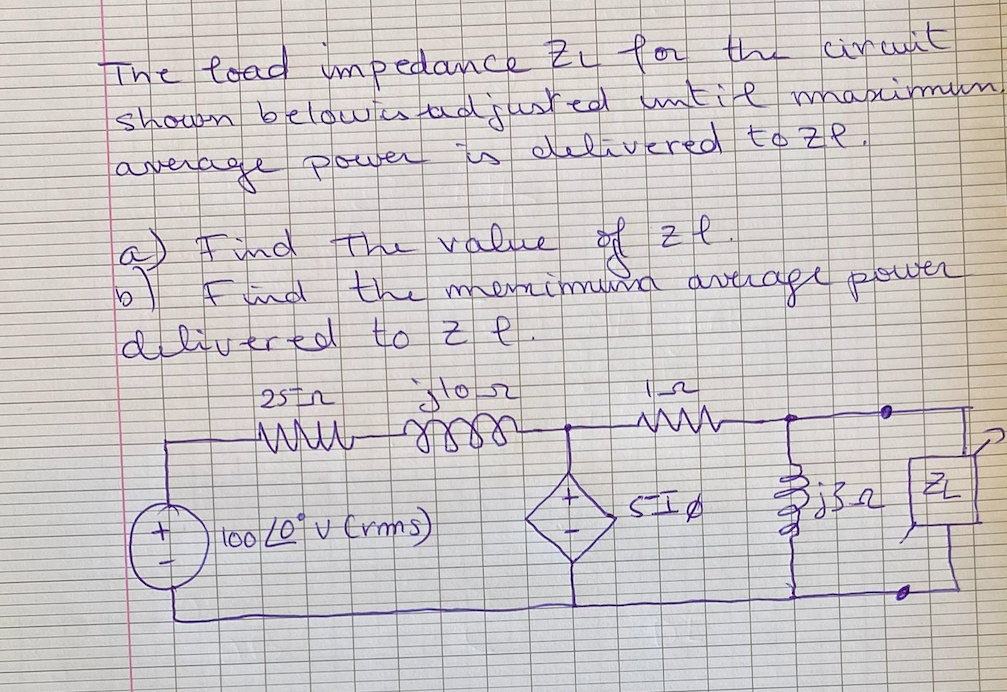 The load impedance ZL for the circuit
shown below is adjusted until maximum
average power is delivered to Zl.
a) Find the value of zl.
b) Find the memimum average power
delivered to Zl.
25Ω j10Ω 1Ω
+ - 100∠0° V (rms) + - 5Iφ j3Ω ZL